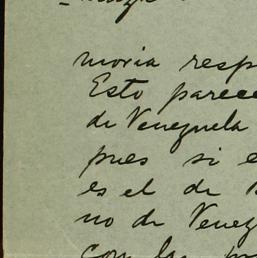 moria resp
Esto parece
de Venezuela
pues si e
es el de
no de Venez
con la